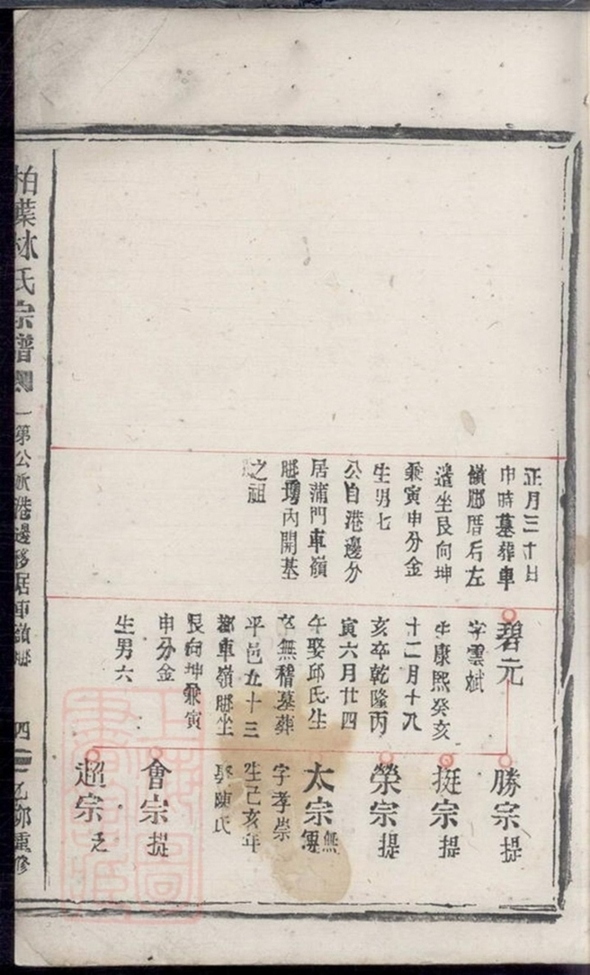 正月三十日
申時墓葬車
嶺腳厝后左
邉坐艮向坤
兼寅申分金
生男七
公自港邊分
居蒲門車嶺
腳塆內開基
之祖
碧元
字雲斌
生康熙癸亥
十二月十九
亥卒乾隆丙
寅六月廿四
午娶邱氏生
卒無稽墓葬
平邑五十三
都車嶺腳坐
艮向坤兼寅
申分金
生男六
勝宗 提
挺宗 提
榮宗 提
太宗 無
字孝崇
生己亥年
娶陳氏
會宗 提
超宗
柏葉林氏宗譜
第公派港邊移居車嶺腳
四
乙卯重修